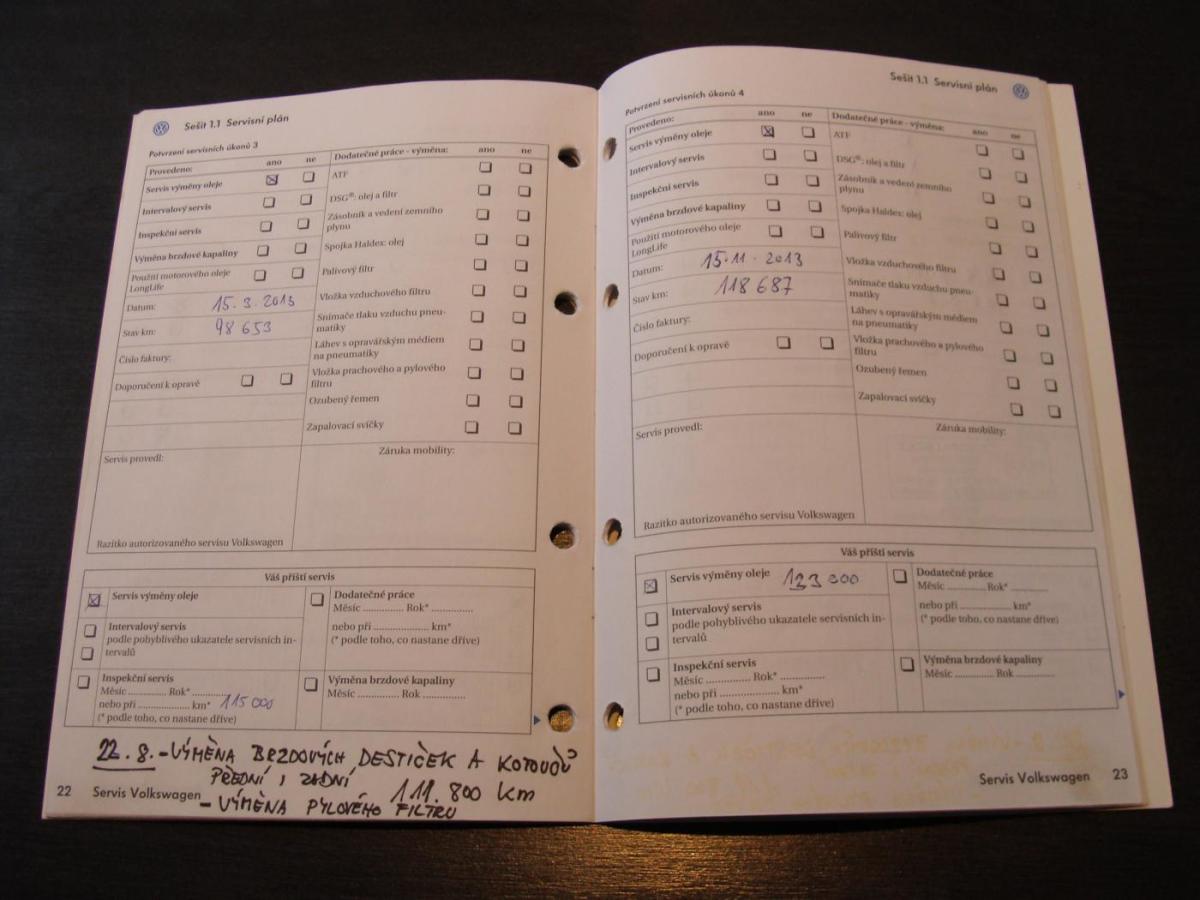 Sešit 1.1 Servisní plán
Potvrzení servisních úkonů 3
Provedeno: ano ne
Servis výměny oleje
Intervalový servis
Inspekční servis
Výměna brzdové kapaliny
Použití motorového oleje
LongLife
Datum: 15.3.2013
Stav km: 98 653
Číslo faktury:
Doporučení k opravě
Servis provedl:
Razítko autorizovaného servisu Volkswagen
Dodatečné práce - výměna: ano ne
ATF
DSG®: olej a filtr
Zásobník a vedení zemního
plynu
Spojka Haldex: olej
Palivový filtr
Vložka vzduchového filtru
Snímače tlaku vzduchu pneu-
matiky
Láhev s opravářským médiem
na pneumatiky
Vložka prachového a pylového
filtru
Ozubený řemen
Zapalovací svíčky
Záruka mobility:
Váš příští servis
Servis výměny oleje
Intervalový servis
podle pohyblivého ukazatele servisních in-
tervalů
Inspekční servis
Měsíc .............. Rok* ..............
nebo při .................... km* 115 000
(* podle toho, co nastane dříve)
Dodatečné práce
Měsíc .............. Rok* ..............
nebo při .................... km*
(* podle toho, co nastane dříve)
Výměna brzdové kapaliny
Měsíc .............. Rok ..............
22.8.-VÝMĚNA BRZDOVÝCH DESTIČEK A KOTOUČŮ
PŘEDNÍ I ZADNÍ 111.800 KM
- VÝMĚNA PYLOVÉHO FILTRU
22 Servis Volkswagen
Sešit 1.1 Servisní plán
Potvrzení servisních úkonů 4
Provedeno: ano ne
Servis výměny oleje
Intervalový servis
Inspekční servis
Výměna brzdové kapaliny
Použití motorového oleje
LongLife
Datum: 15.11.2013
Stav km: 118 687
Číslo faktury:
Doporučení k opravě
Servis provedl:
Razítko autorizovaného servisu Volkswagen
Dodatečné práce - výměna: ano ne
ATF
DSG®: olej a filtr
Zásobník a vedení zemního
plynu
Spojka Haldex: olej
Palivový filtr
Vložka vzduchového filtru
Snímače tlaku vzduchu pneu-
matiky
Láhev s opravářským médiem
na pneumatiky
Vložka prachového a pylového
filtru
Ozubený řemen
Zapalovací svíčky
Záruka mobility:
Váš příští servis
Servis výměny oleje 133 000
Intervalový servis
podle pohyblivého ukazatele servisních in-
tervalů
Inspekční servis
Měsíc .............. Rok* ..............
nebo při .................... km*
(* podle toho, co nastane dříve)
Dodatečné práce
Měsíc .............. Rok* ..............
nebo při .................... km*
(* podle toho, co nastane dříve)
Výměna brzdové kapaliny
Měsíc .............. Rok ..............
Servis Volkswagen 23